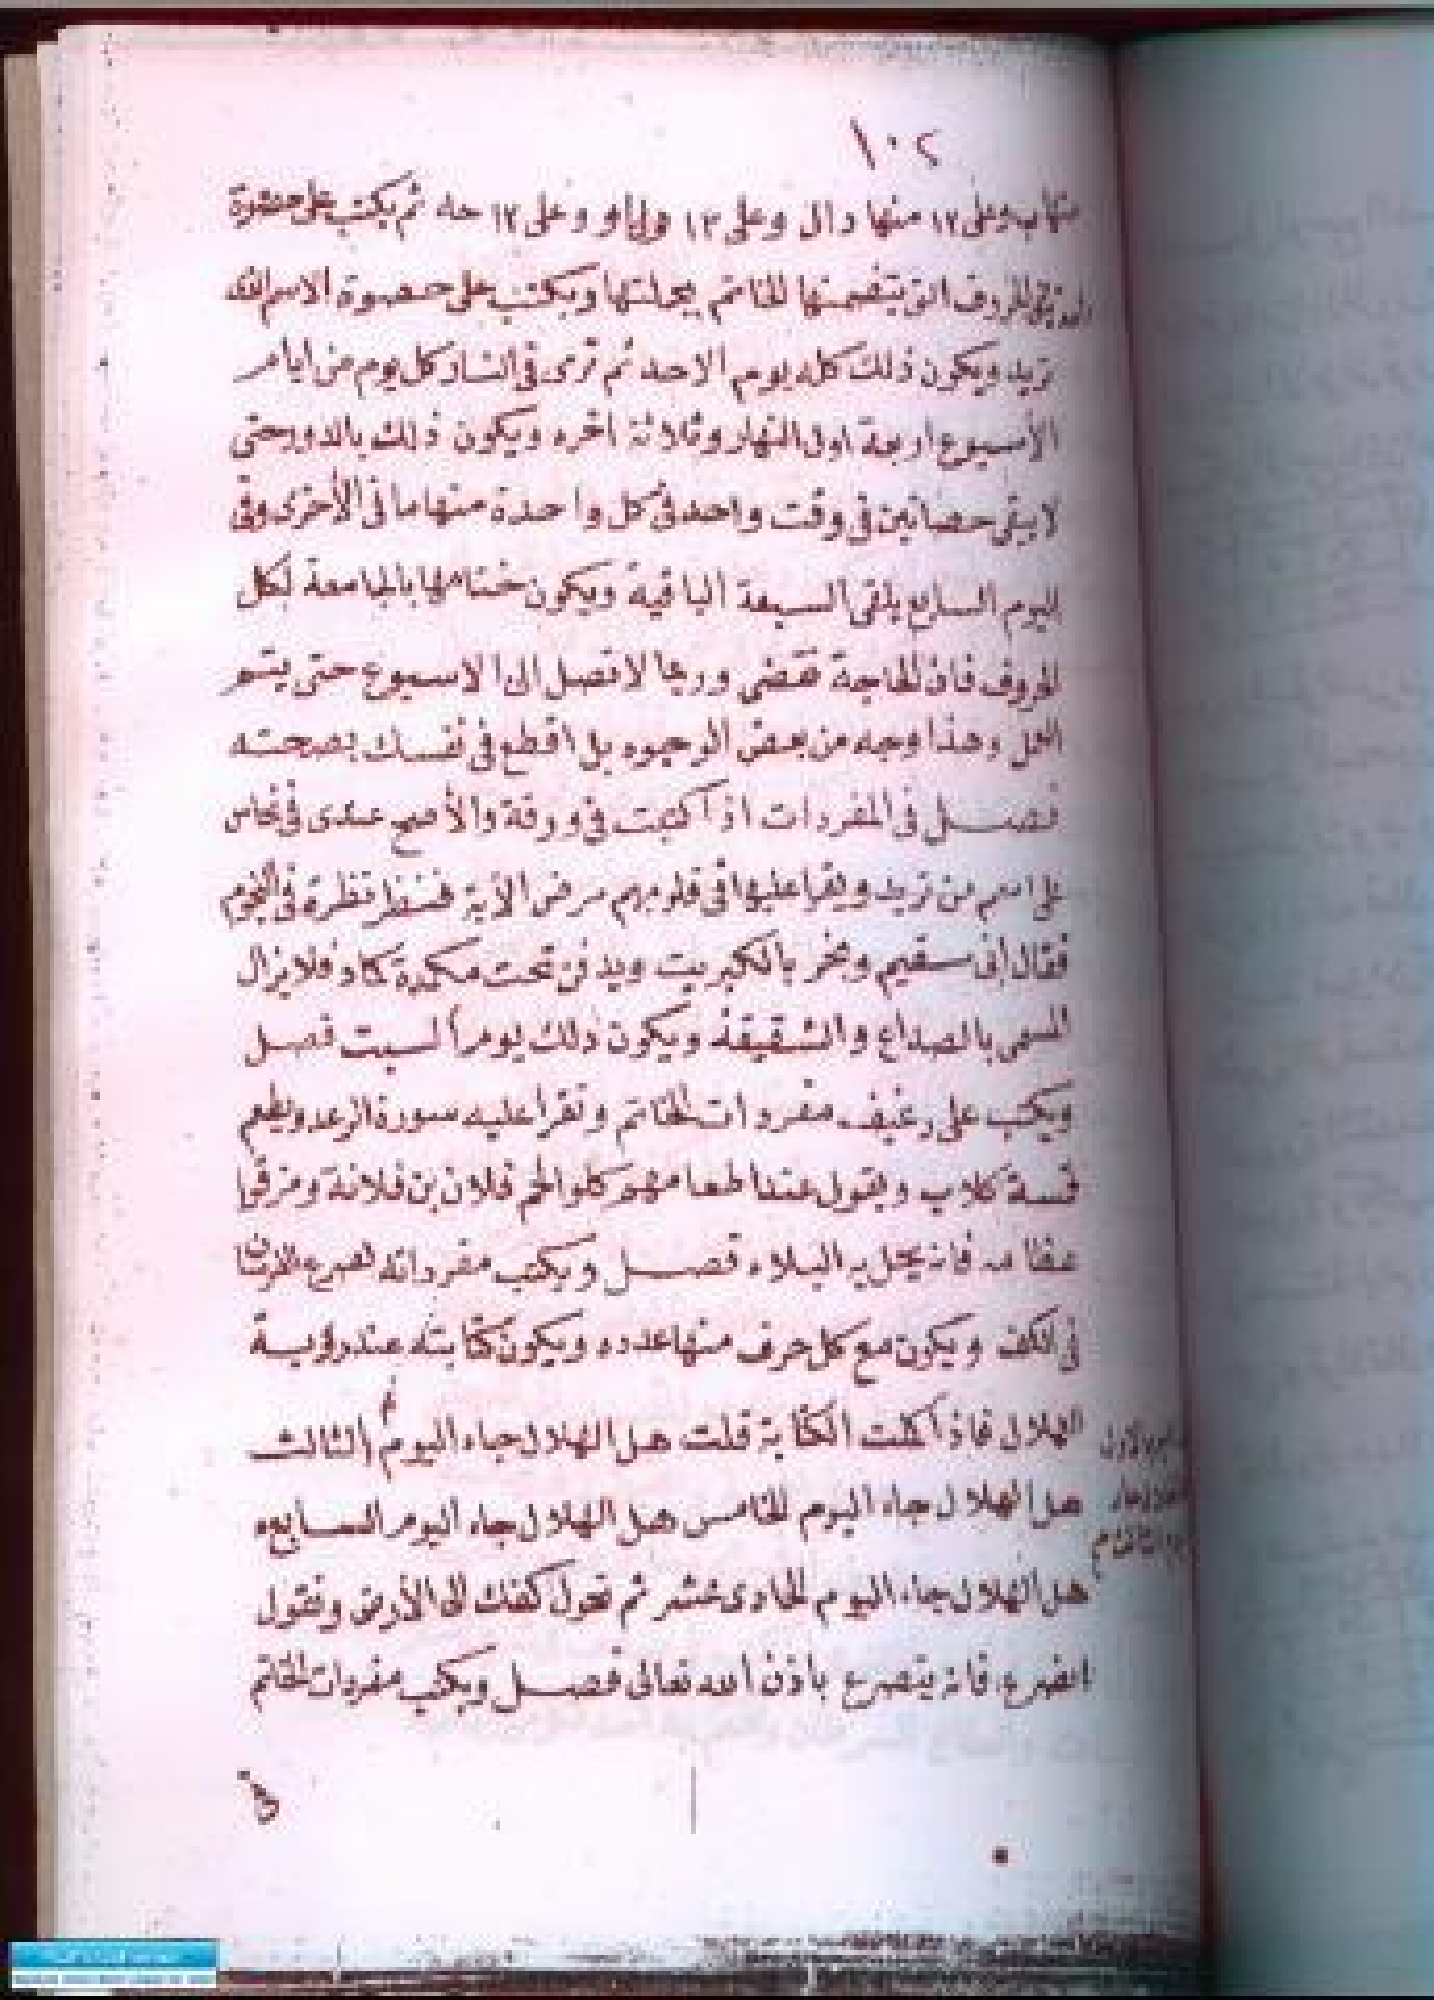 ١٠٢
منها ب وعلى ١٢ منها دال وعلى ١٣ وعلى ١٢ حه ثم يكتب على حصوة
الحروف التي يتضمنها الخاتم بجملتها ويكتب على حصوة الاسم الذى
تريد ويكون ذلك كله يوم الاحد ثم ترى فى النار كل يوم من ايام
الأسبوع اربعة اول النهار وثلاثة اخره ويكون ذلك بالدور حتى
لا يبقى حصاتين فى وقت واحد فى كل واحدة منها ما فى الأخرى وفى
اليوم السابع يلقى السبعة الباقية ويكون ختامها بالجامعة لكل
الحروف فان الحاجة تقضى وربما لا تصل الى الاسبوع حتى يتم
العمل وهذا وجه من بعض الوجوه بل اقطع فى نفسك بصحته
فصل فى المفردات اذا كتبت فى ورقة والأصح عندى فى نحاس
على اسم من تريد ويقرا عليها فى قلوبهم مرض الآية فنظر نظرة فى النجوم
فقال إنى سقيم وبخر بالكبريت ويدفن تحت مكمدة كماد فلا يزال
المسمى بالصداع والشقيقة ويكون ذلك يوم السبت فصل
ويكتب على رغيف مفردات الخاتم وتقرا عليه سورة الرعد ويطعم
خمسة كلاب ويقول عند اطعامهم كلوا لحم فلان بن فلانة ومزقوا
عظامه فانه يحل به البلاء فصل ويكتب مفرداته لصرع
فى الكف ويكون مع كل حرف منها عدده ويكون كتابته عند رؤية
الهلال فاذا كملت الكتابة قلت هل الهلال جاء اليوم الثالث
هل الهلال جاء اليوم الخامس هل الهلال جاء اليوم السابع
هل الهلال جاء اليوم الحادى عشر ثم تحول كفك الى الأرض وتقول
انصرع فانه يتصرع باذن الله تعالى فصل ويكتب مفردات الخاتم
فى